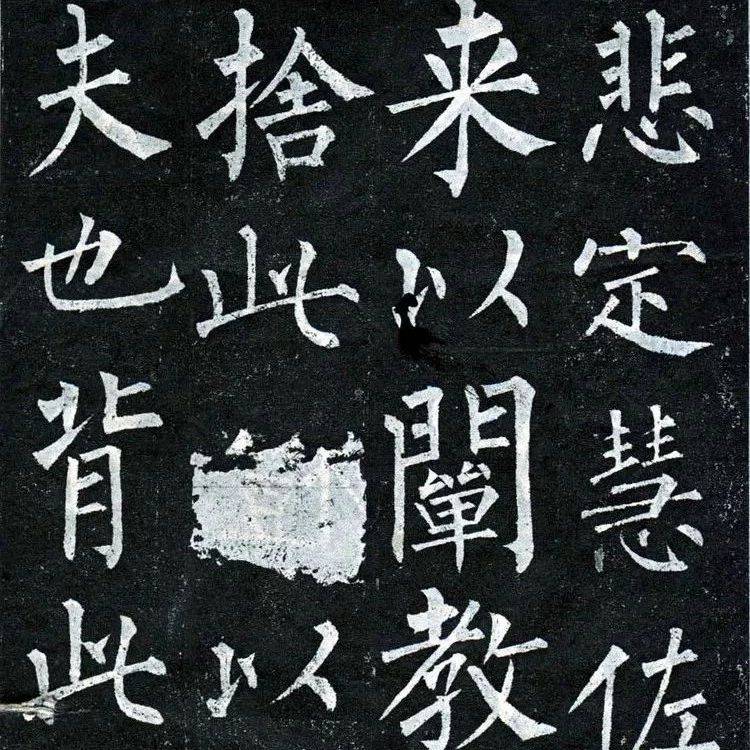 悲定慧佐
来以闡教
捨此以
夫也背此